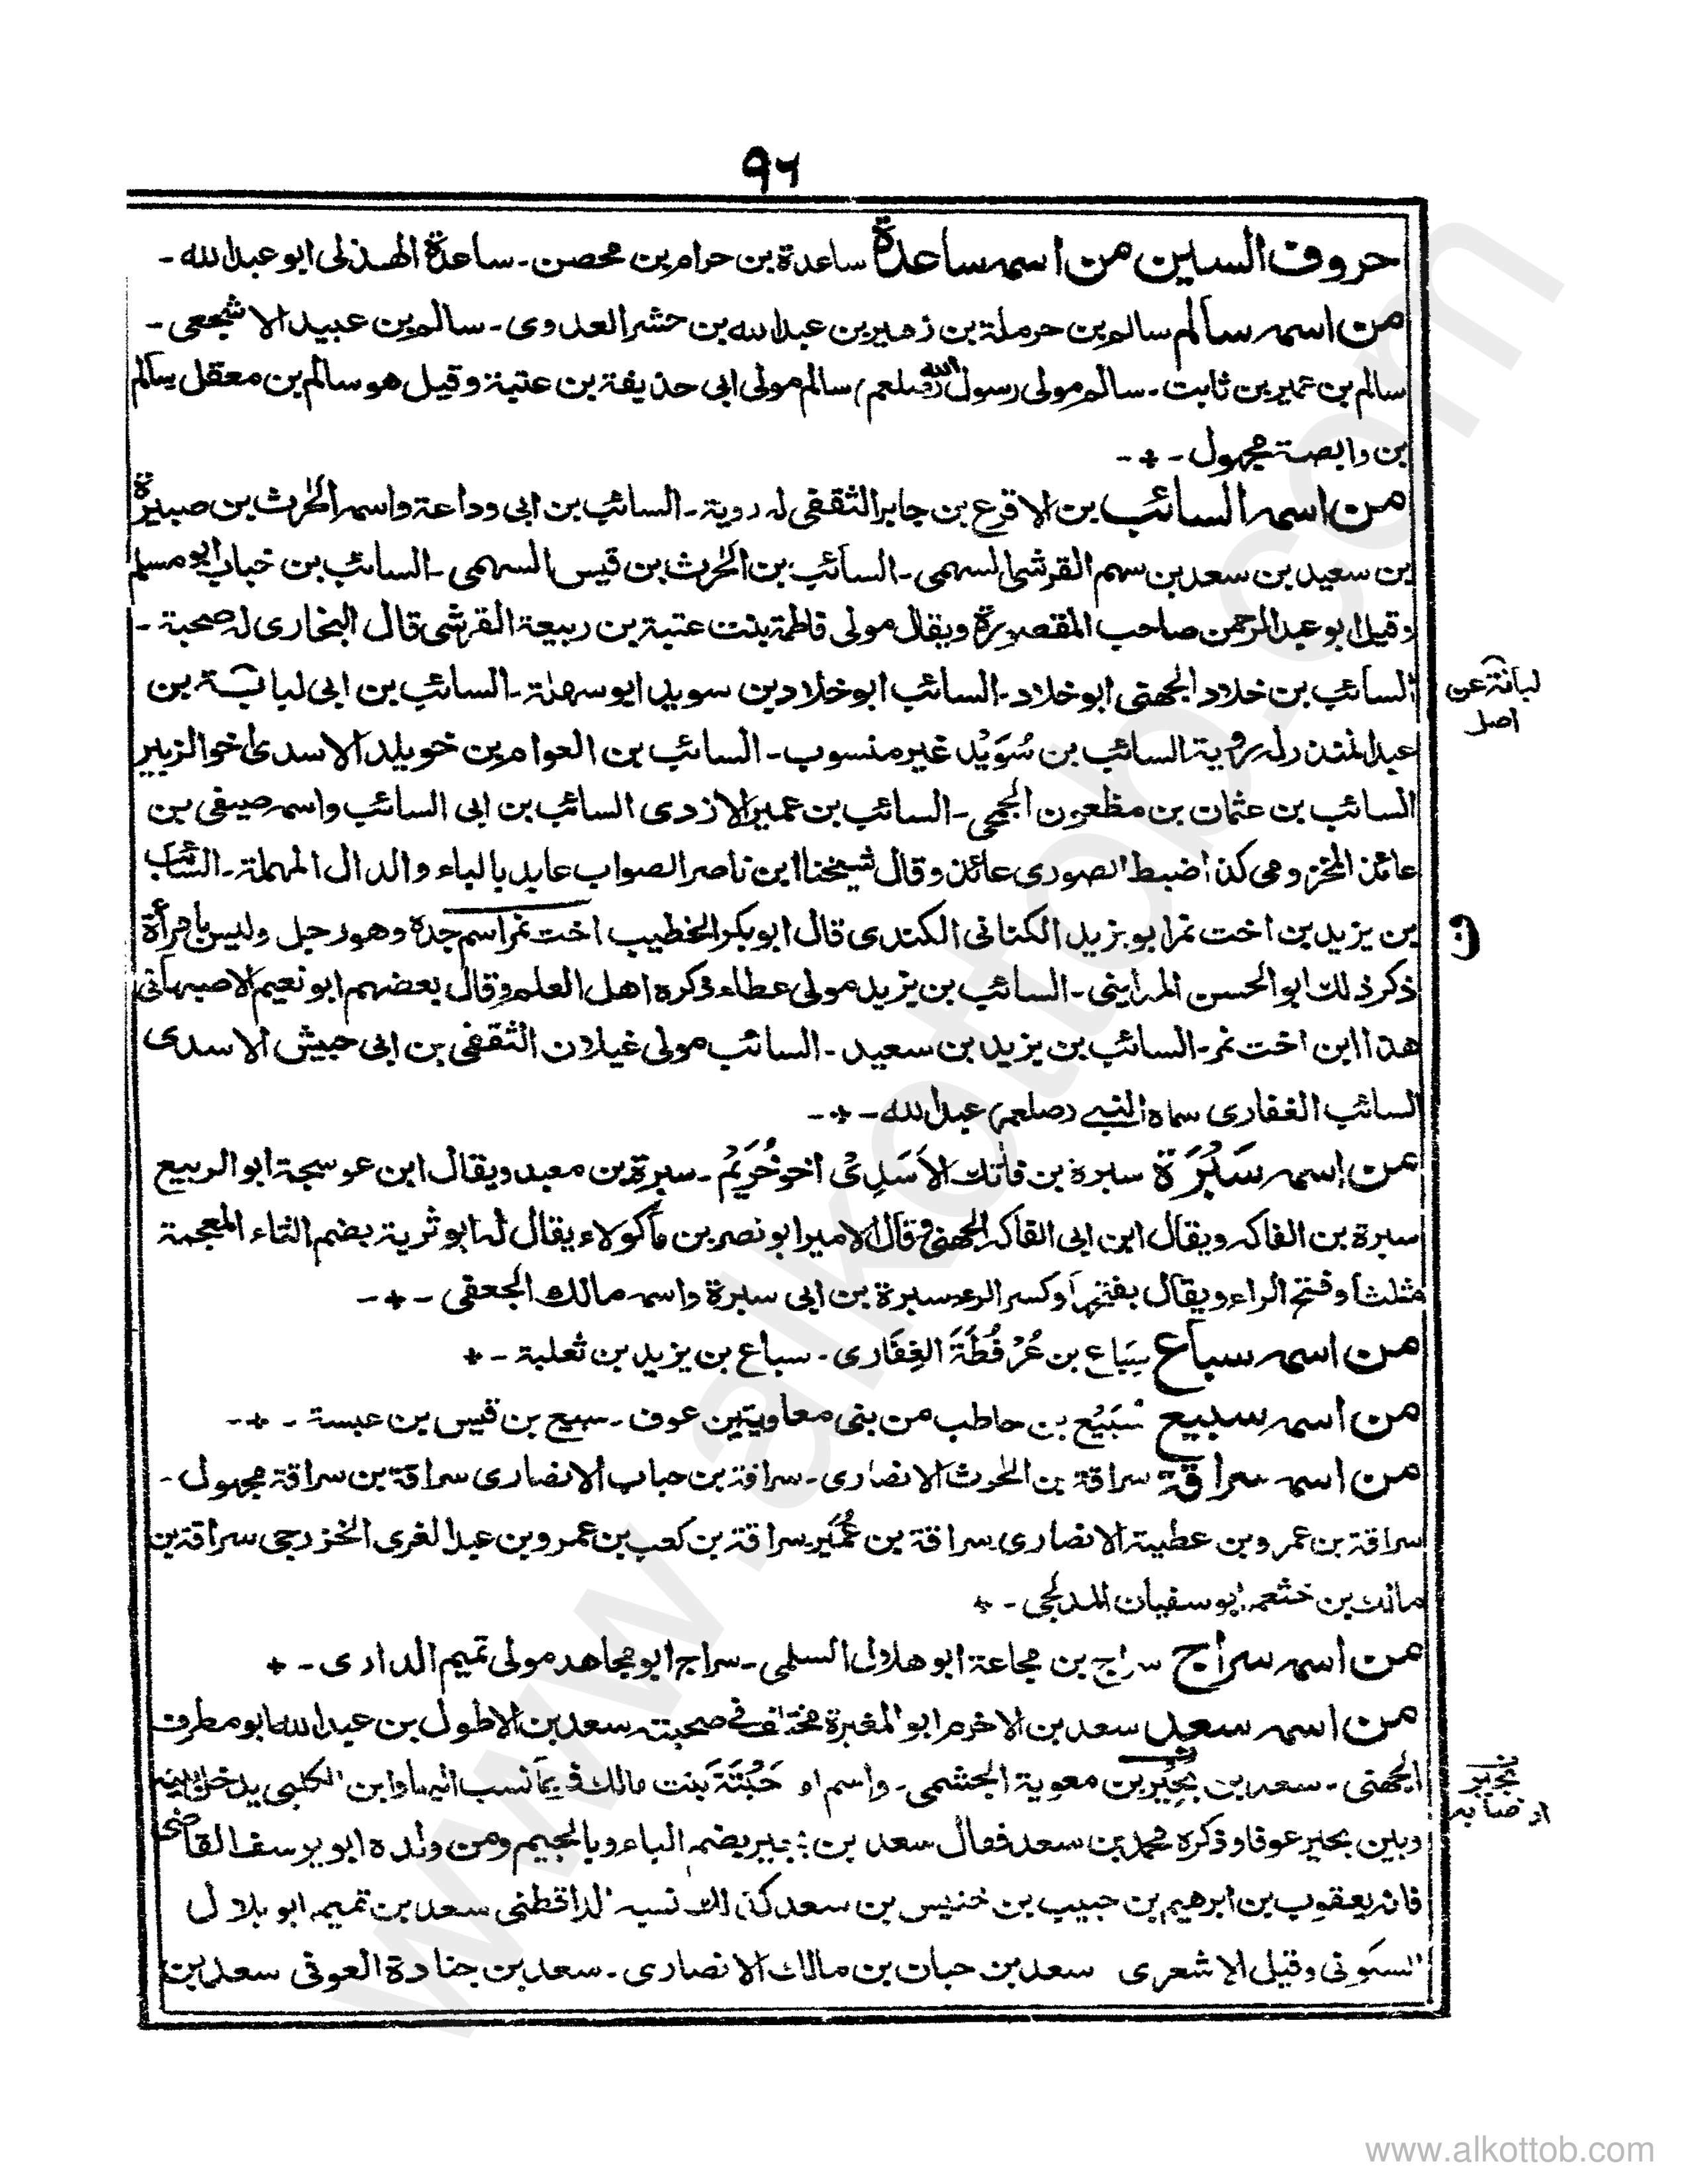 ٩٢
حروف السين من اسمه ساعدة ساعدة بن حرام بن محصن ـ ساعدة الهذلى ابو عبد الله ـ
من اسمه سالم سالم بن حرملة بن زهير بن عبد الله بن حشر العدوى ـ سالم بن عبيد الاشجعى ـ
سالم بن عمير بن ثابت ـ سالم مولى رسول الله (صلعم) سالم مولى ابى حذيفة بن عتبة وقيل هو سالم بن معقل سالم
بن وابصة مجهول ـ + ـ
من اسمه السائب بن الاقرع بن جابر الثقفى له روية ـ السائب بن ابى وداعة واسمه الحٰرث بن صبيرة
بن سعيد بن سعد بن سهم القرشى السهمى ـ السائب بن الحٰرث بن قيس السهمى ـ السائب بن خباب ابو مسلم
وقيل ابو عبد الرحمن صاحب المقصورة ويقال مولى فاطمة بنت عتبة بن ربيعة القرشى قال البخارى له صحبة ـ
السائب بن خلاد الجهنى ابو خلاد ـ السائب ابو خلاد بن سويد ابو سهلة ـ السائب بن ابى لبابة بن
لبانة عن
اصل
عبد المنذر له روية السائب بن سُوَيْد غير منسوب ـ السائب بن العوام بن خويلد الاسدى اخو الزبير
السائب بن عثمان بن مظعون الجمحى ـ السائب بن عمير الازدى السائب بن ابى السائب واسمه صيفى بن
عائذ المخزومى كذا ضبط الصورى عائذ وقال شيخنا ابن ناصر الصواب عابد بالباء والدال المهملة ـ السائب
بن يزيد بن اخت نمر ابو يزيد الكنانى الكندى قال ابو بكر الخطيب اخت نمر اسم جدة وهو رجل وليس بامرأة
ذكر ذلك ابو الحسن المداينى ـ السائب بن يزيد مولى عطاء ذكره اهل العلم وقال بعضهم ابو نعيم الاصبهانى
هذا ابن اخت نمر ـ السائب بن يزيد بن سعيد ـ السائب مولى غيلان الثقفى بن ابى حبيش الاسدى
السائب الغفارى سماه النبى (صلعم) عبد الله ـ + ـ
من اسمه سَبْرَة سبرة بن فاتك الاَسَدِىْ اخو خُرَيْم ـ سبرة بن معبد ويقال ابن عوسجة ابو الربيع
سبرة بن الفاكه ويقال ابن ابى الفاكه الجهنى قال الامير ابو نصر بن ماكولاء يقال له ابو ثرية بضم الثاء المعجمة
مثلثا وفتح الراء ويقال بفتحها وكسر الراء سبرة بن ابى سبرة واسمه مالك الجعفى ـ + ـ
من اسمه سباع سِبَاع بن عُرْفُطَةَ الغِفَارى ـ سباع بن يزيد بن ثعلبة ـ +
من اسمه سبيع سُبَيْع بن حاطب من بنى معاوية بن عوف ـ سبيع بن قيس بن عبسة ـ + ـ
من اسمه سراقة سراقة بن الحٰرث الانصارى ـ سراقة بن حباب الانصارى سراقة بن سراقة مجهول ـ
سراقة بن عمرو بن عطية الانصارى سراقة بن عُمَيْر سراقة بن كعب بن عمرو بن عبد الغرى الخزرجى سراقة بن
مالك بن خثعم ابو سفيان المدلجى ـ +
من اسمه سراج سراج بن مجاعة ابو هلال السلمى ـ سراج ابو مجاهد مولى تميم الدارى ـ +
من اسمه سعد سعد بن الاخرم ابو المغيرة مختلف فى صحبته سعد بن الاطول بن عبد الله ابو مطرف
الجهنى ـ سعد بن بحِيْر بن معوية الجشمى ـ واسم او حَبْتَةَ بنت مالك فيما نسب اليها وابن الكلبى يدخل بينه
وبين بحير عوفا وذكره محمد بن سعد فقال سعد بن بجير بضم الباء وبالجيم ومن ولده ابو يوسف القاضى
فانه يعقوب بن ابرهيم بن حبيب بن خنيس بن سعد كذلك نسبه الداقطنى سعد بن تميم ابو بلال
السكونى وقيل الاشعرى سعد بن حبان بن مالك الانصارى ـ سعد بن جنادة العوفى سعد بن
www.alkottob.com